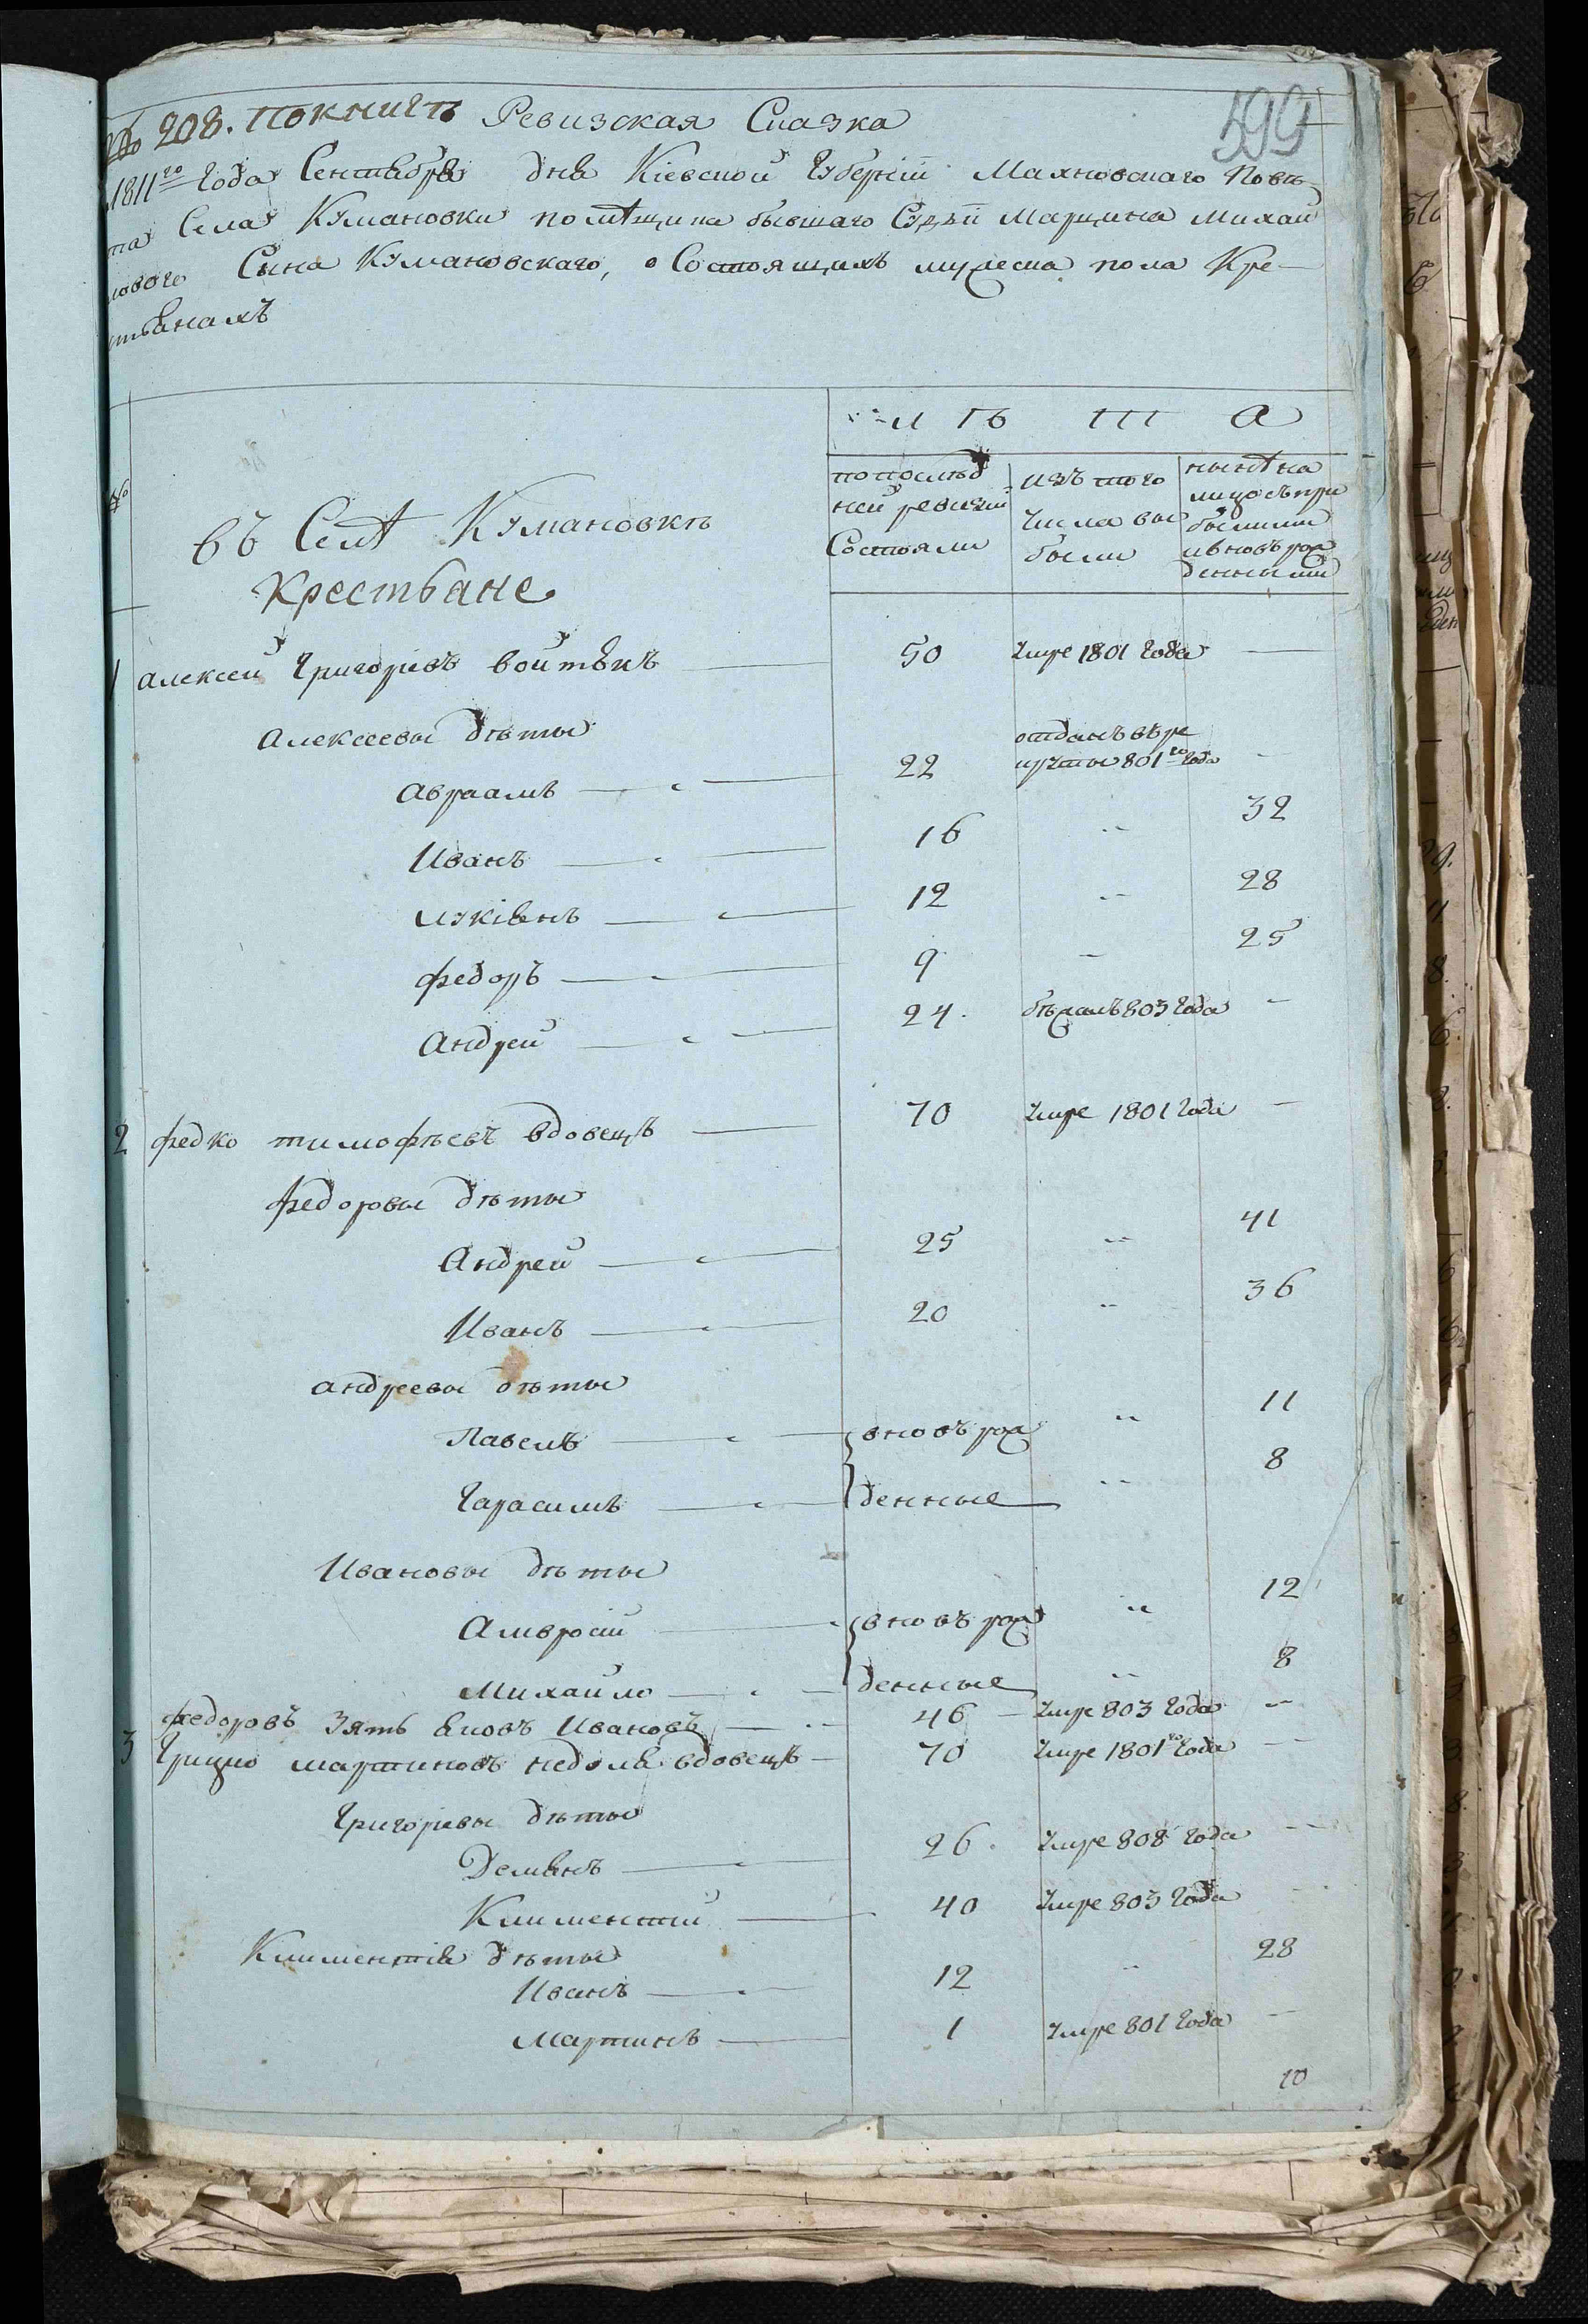 № 208. по книгѣ Ревизская Сказка
599
1811го Года Сентября дня Кіевской Губерніи Махновского Повѣ
та Села Кумановки помѣщика бывшаго Судьи Марцина Михай
лового Сына Кумановскаго, о Состоящихъ мужеска пола Кре-
стьянахъ
л ѣ т а
№
въ Селѣ Кумановкѣ
Крестьяне
по послѣд
ней ревизіи
Состояли
изъ того
числа вы
были
нынѣ на
лицо съ при
былыми
и вновь рож
денными
1 Алексей Григоріевъ Войтюкъ 50 Умре 1801 Года —
Алексеевы дѣты
Авраамъ — 22 отданъ въ ре
круты 801го Года -
Иванъ — 16 „ 32
— 12 „ 28
Федоръ — 9 - 25
Андрей — 24. бѣжалъ 803 Года -
2 Федко Тимофѣевъ вдовецъ — 70 Умре 1801 Года -
Федоровы дѣты
Андрей — 25 „ 41
Иванъ — 20 „ 36
Андреевы дѣты
Павелъ — вновь рож „ 11
Гарасимъ — денные „ 8
Ивановы дѣты
Амвросій — вновь рож „ 12
Михайло — денные „ 8
Федоровъ Зять Яковъ Ивановъ — 46 — Умре 803 Года -
3 Грицко Мартиновъ Недоля вдовецъ — 70 Умре 1801го Года -
Григоріевы дѣты
Демянъ — 26. Умре 808 Года -
Климентій — 40 Умре 803 Года -
Климентія дѣты
Иванъ — 12 „ 28
Мартинъ — 1 Умре 801 Года —
10